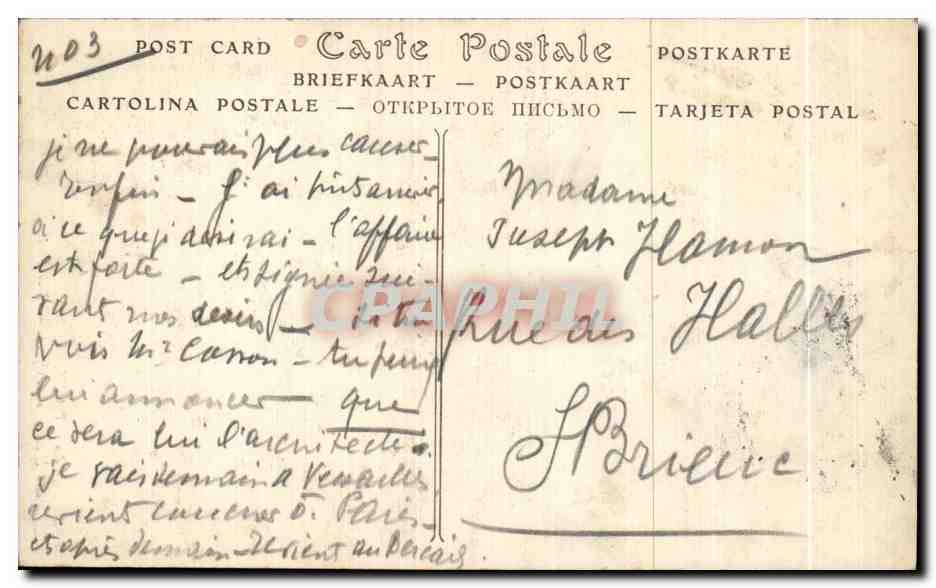 n° 3
POST CARD Carte Postale POSTKARTE
BRIEFKAART — POSTKAART
CARTOLINA POSTALE — ОТКРЫТОЕ ПИСЬМО — TARJETA POSTAL
je ne pourrais plus causer —
enfin — J'ai fait arriver
à ce que je désirai — l'affaire
est faite — et signée sui-
vant mes désirs — si tu
vois Mr Cosson — tu peux
lui annoncer — que
ce sera lui l'architecte.
je vais demain à Versailles
revient coucher à Paris —
et après demain revient au Bercail.
Madame
Joseph Hamon
Rue des Halles
St Brieuc
CPAPHIL